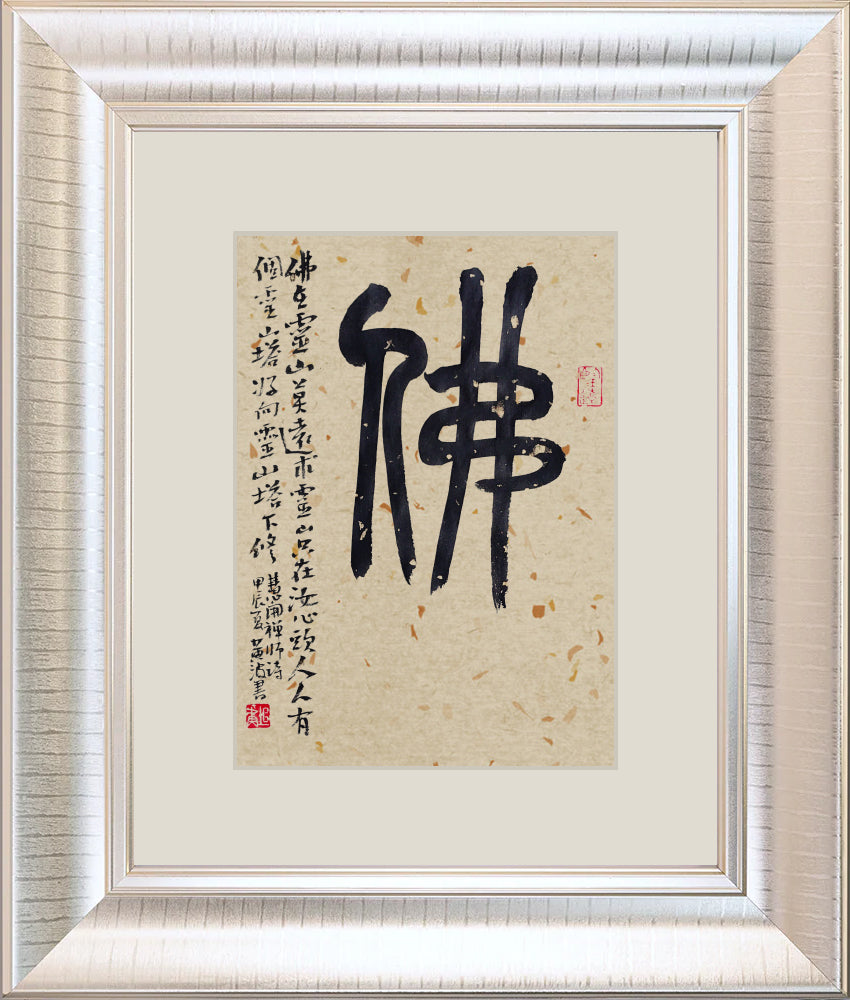 佛
佛在靈山莫遠求靈山只在汝心頭人人有
個靈山塔好向靈山塔下修
慧開禪師詩
甲辰夏黃書